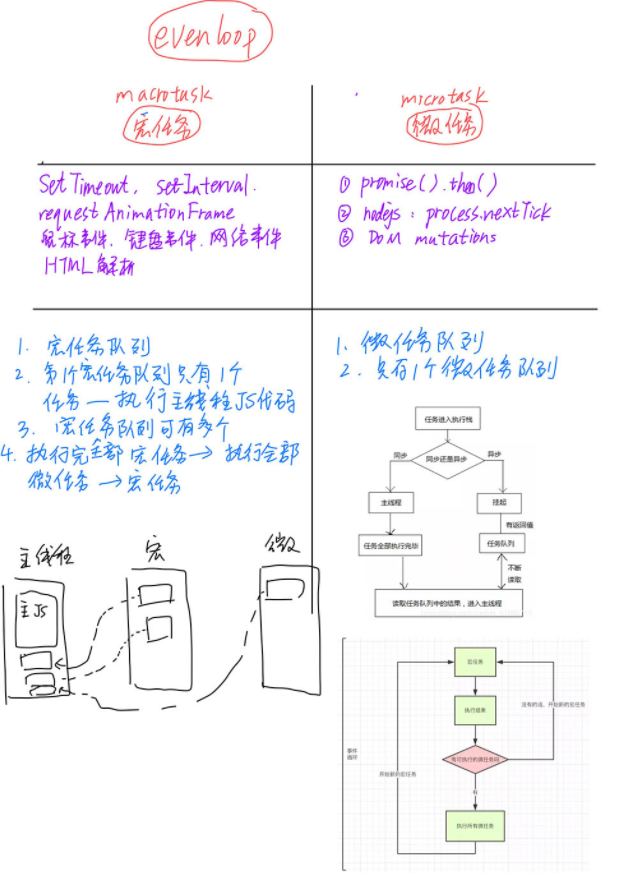 evenloop
macrotask
宏任务
microtask
微任务
SetTimeout, setInterval.
requestAnimationFrame
鼠标事件、键盘事件、网络事件
HTML解析
① promise().then()
② nodejs : process.nextTick
③ DoM mutations
1. 宏任务队列
2. 第1个宏任务队列只有1个
任务 — 执行主线程JS代码
3. 宏任务队列可有多个
4. 执行完全部宏任务 → 执行全部
微任务 → 宏任务
1. 微任务队列
2. 只有1个微任务队列
任务进入执行栈
同步
同步还是异步
异步
主线程
挂起
有返回值
任务全部执行完毕
任务队列
不断
读取
读取任务队列中的结果，进入主线程
主线程
宏
微
主JS
宏任务
执行结束
没有的话，开始新的宏任务
有可执行的微任务吗
事件
循环
开始新的宏任务
有
执行所有微任务